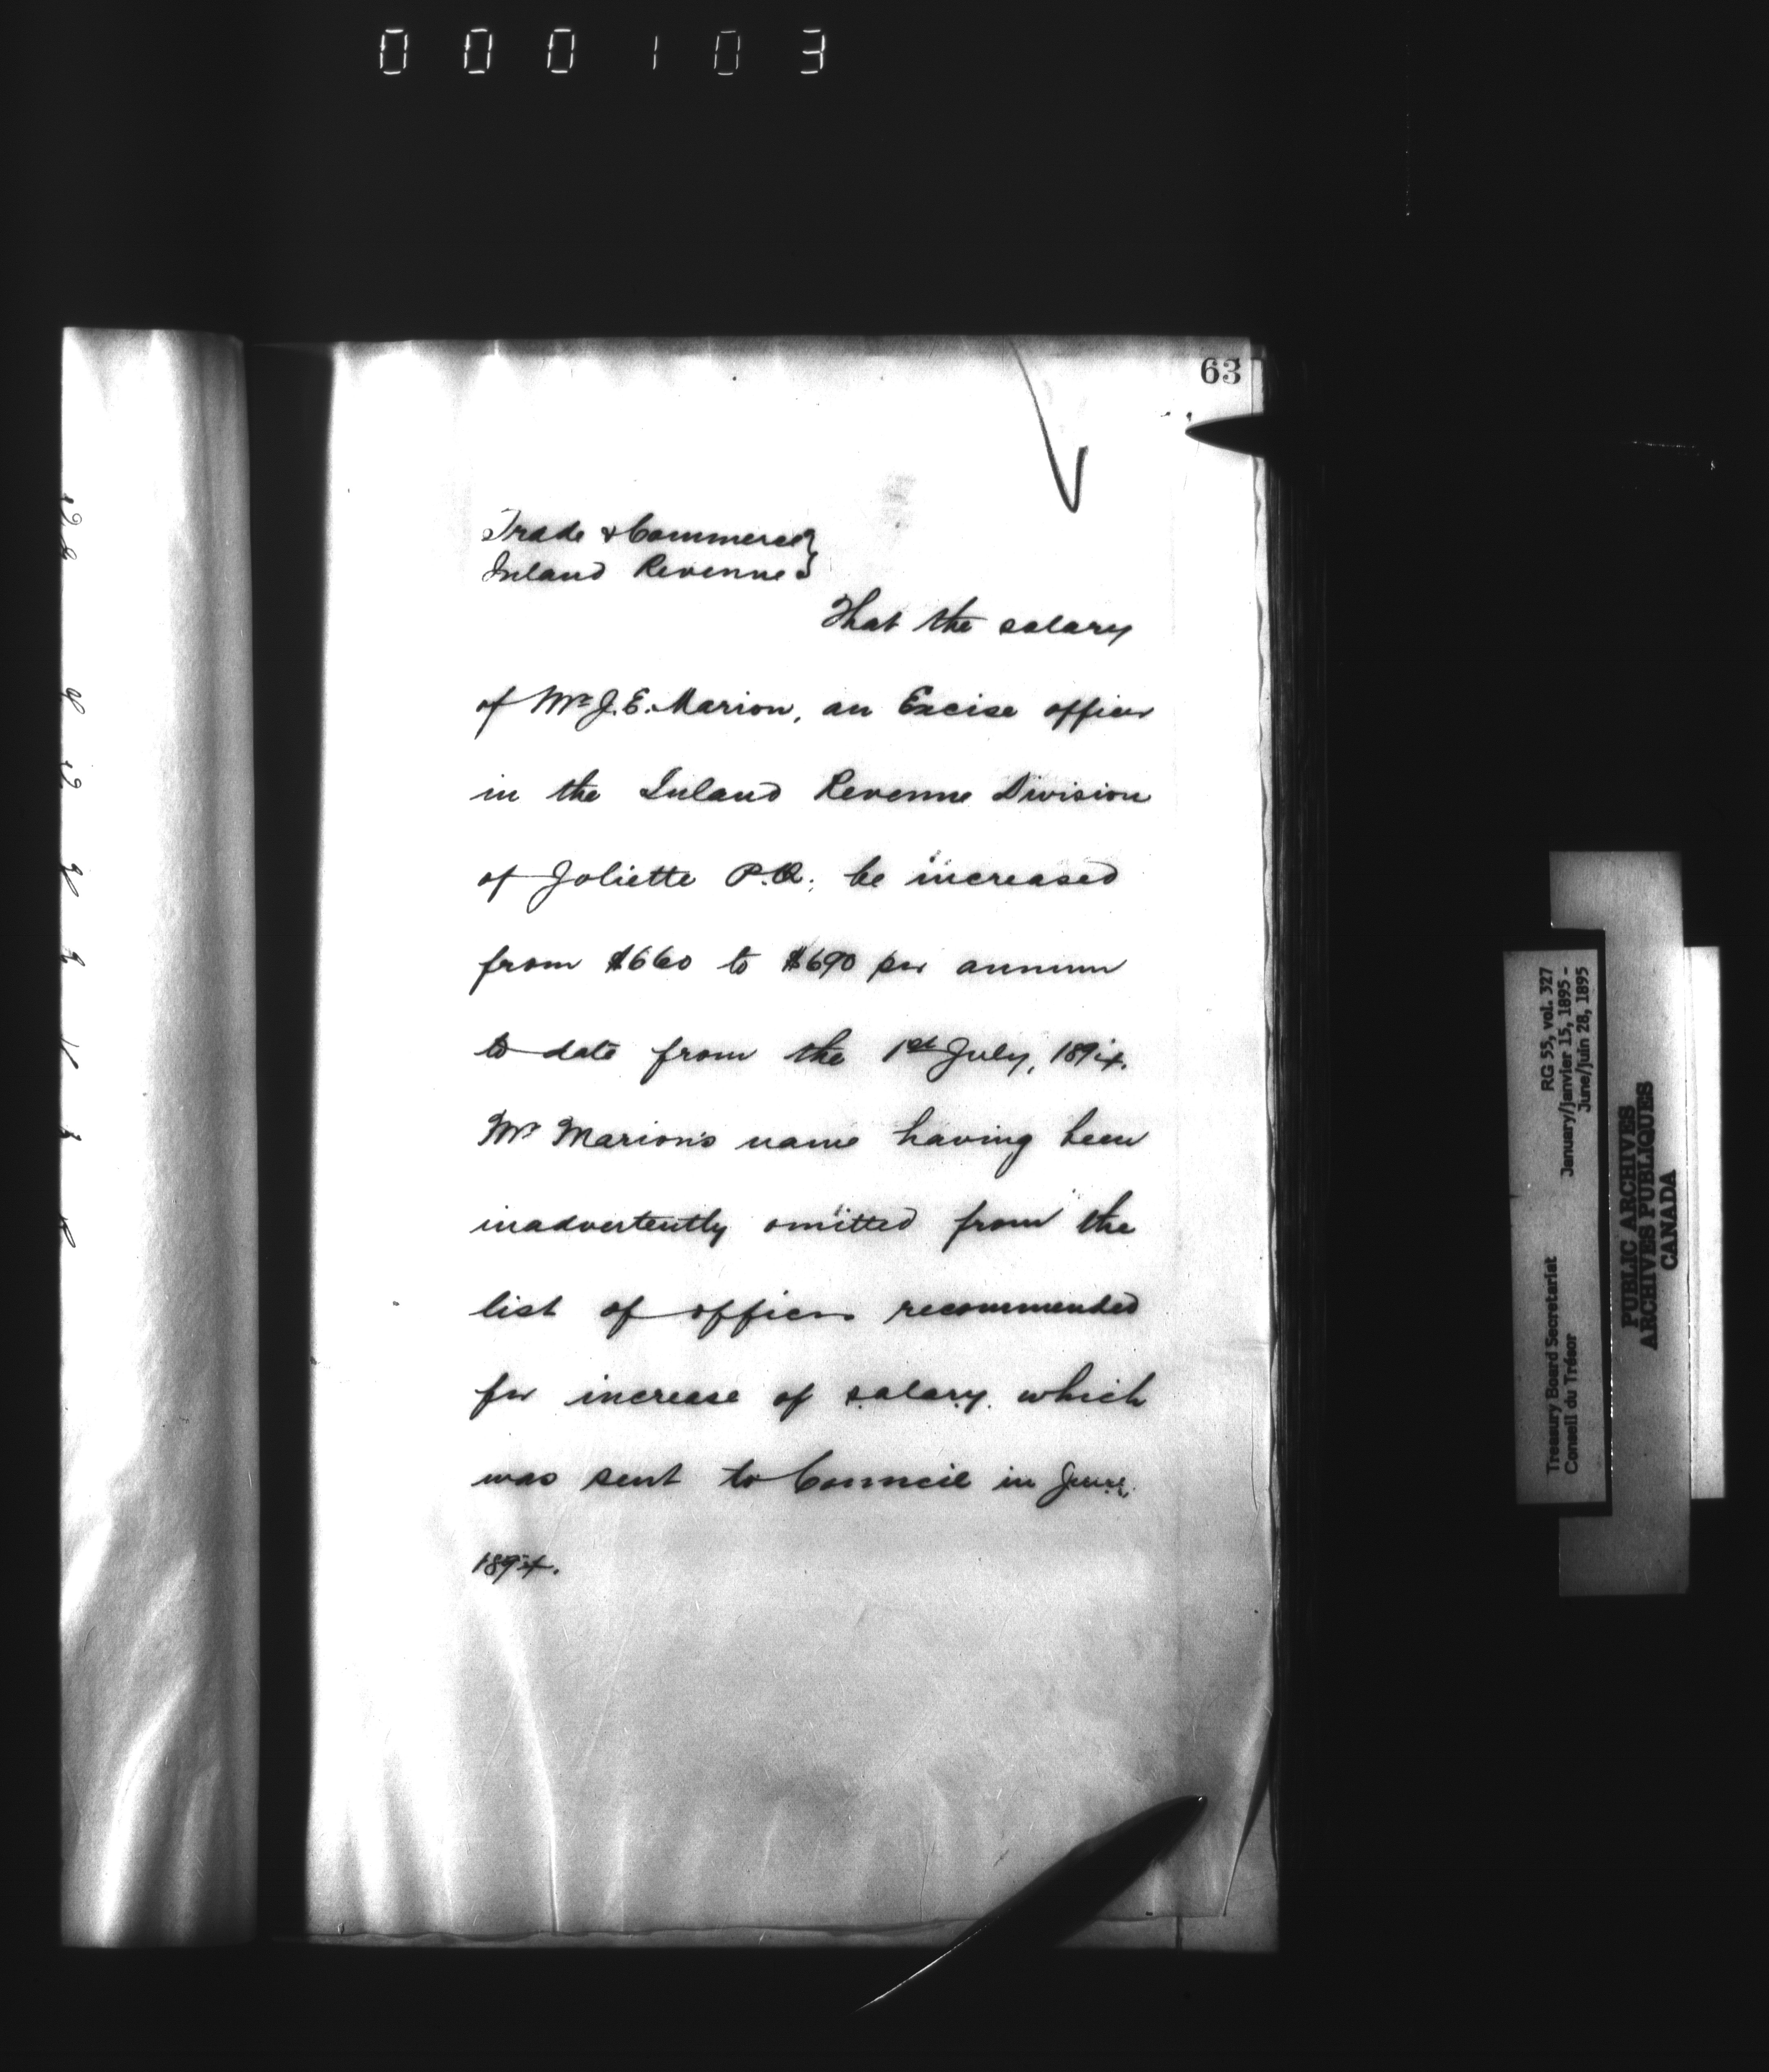 000103
63
Trade & Commerce }
Inland Revenue }
That the salary
of Mr J. E. Marion, an Excise officer
in the Inland Revenue Division
of Joliette P.Q. be increased
from $660 to $690 per annum
to date from the 1st July, 1894.
Mr Marion's name having been
inadvertently omitted from the
list of officers recommended
for increase of salary which
was sent to Council in June,
1894.
Treasury Board Secretariat RG 55, vol. 327
Conseil du Trésor January/janvier 15, 1895 -
June/juin 28, 1895
PUBLIC ARCHIVES
ARCHIVES PUBLIQUES
CANADA